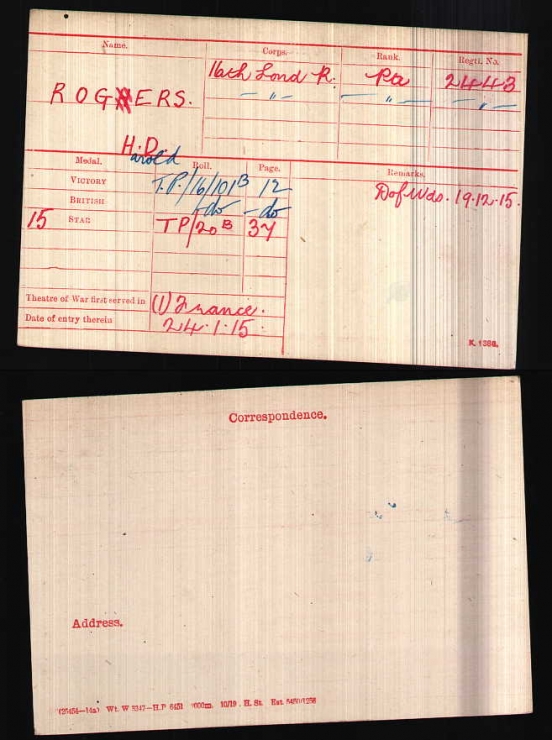 Name. Corps. Rank. Regtl. No.
16th Lond R. Pte 2443
ROGERS. — " — — " — — " —
H.D.
arold
Medal. Roll. Page. Remarks.
VICTORY T.P./16/101B 12 D of Wds. 19.12.15.
BRITISH -do- -do-
15 STAR TP/20B 37
Theatre of War first served in (1) France.
Date of entry therein 24.1.15.
K. 1380.
Correspondence.
Address.
Wt. W 5347—H.P 10/19. H. St.